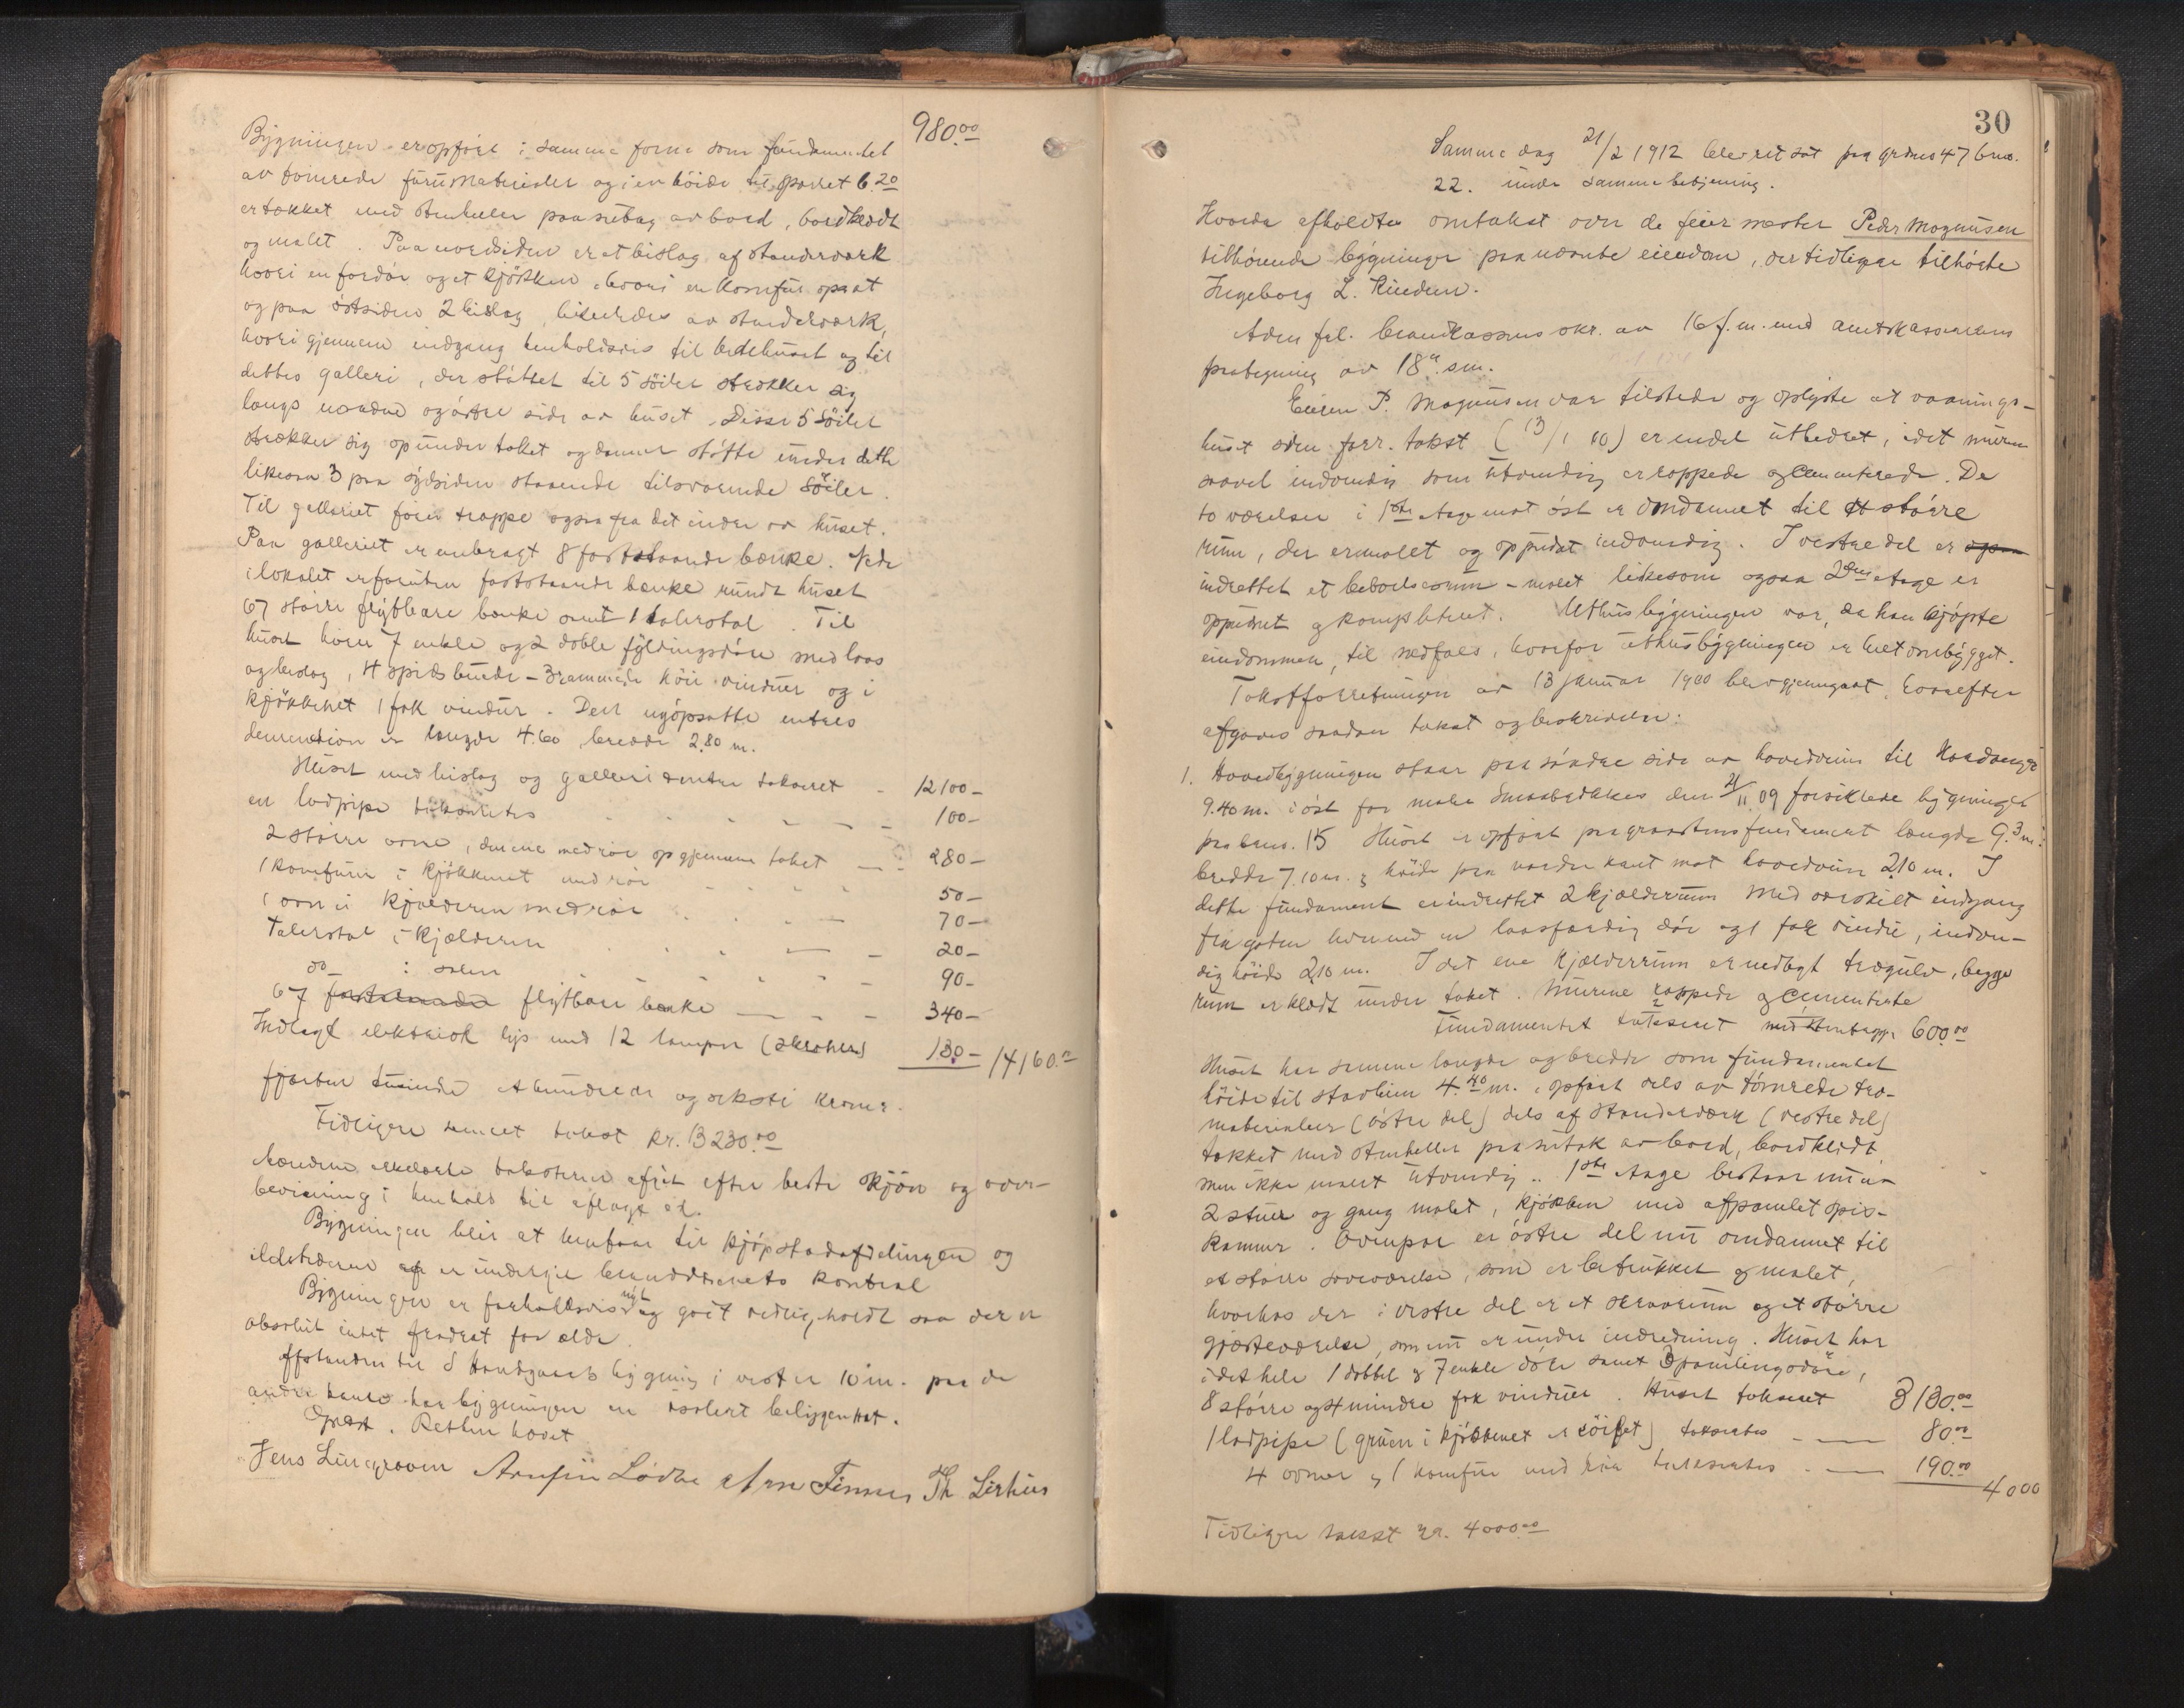 980.00
Bygningen er opført i samme form som fundamentet
av tømrede furumaterialer og i en høide til sparret 6.20
er tækket med stenheller paa sutag av bord, bordklædt
og malet. Paa nordsiden er et bislag af standerværk
hvori en fordør og et kjøkken, hvori en komfur opsat
og paa østsiden 2 bislag, likeledes av standerværk,
hvori gjennem indgang henholdsvis til bedehuset og til
dettes galleri, der støttet til 5 søiler strækker sig
langs nordre og østre side av huset. Disse 5 søiler
strækker sig op under taket og danner støtte under dette
likesaa 3 paa sydsiden staaende tilsvarende søiler.
Til galleriet fører trappe ogsaa fra det indre av huset.
Paa galleriet er anbragt 8 faststaaende bænke. Nede
i lokalet er foruten faststaaende bænke rundt huset
67 større flytbare bænke samt 1 talerstol. Til
huset hører 7 enkle og 2 doble fyldingsdøre med laas
og beslag, 4 spidsbuede - 3rammede høie vinduer og i
kjøkkenet 1 fak vindu. Dett nyopsatte
dimension er længde 4.60 bredde 2.80 m.
Huset med bislag og galleri takseret - 12100 -
en lodpipe taksertes - 100 -
2 større ovne, den ene med rør op gjennem taket - 280 -
1 komfur i kjøkkenet med rør - 50 -
1 ovn i kjælderen med rør - 70 -
Talerstol i kjælderen - 20 -
do - i salen - 90 -
67 flytbare bænke - 340 -
Indlagt elektrisk lys med 12 lamper 130 - 14160.-
fjorten tusinde et hundrede og seksti kroner.
Tidligere samlet takst kr. 13230.00
Mændene erklærte taksten afgit efter beste skjøn og over-
bevisning i henhold til aflagt ed.
Bygningen blir at henføre til kjøpstadafdelingen og
ildstederne er undergit branddirekts kontrol
Bygningen er forholdsvis nyt og godt vedligeholdt saa der er
absolut intet fradrat for ælde.
Afstanden til S Haudgaards bygning i vest er 10 m. paa de
andre kanter har bygningen en isolert beliggenhet.
Oplæst. Retten hævet
Jens Arnfin Lødve Arne Finnes Th. Lirhus
30
Samme dag 21/2 1912 blev ret sat paa grdno 47 bno.
22. under samme betjening.
Hvorda afholdtes omtakst over de feier mester Peder Magnusen
tilhørende bygninger paa nævnte eiendom, der tidligere tilhørte
Ingeborg L. Kinden.
Aden frl. brandkassens skr. av 16 f.m. med amtskasserens
paategning av 18 s.m.
Eieren P. Magnusen var tilstede og oplyste at vaanings-
huset siden forr. takst (13/1 00) er endel utbedret, idet murene
saavel indvendig som utvendig er rappede og cementerede. De
to værelser i 1ste etage mot øst er omdannet til et større
rum, der er malet og oppudset indvendig. I vestre del er
indrettet et beboelsesrum - malet likesom ogsaa 2den etage er
oppudset og komplettert. Uthusbygningen var, da han kjøpte
eiendommen, til nedfals, hvorfor uthusbygningen er helt ombygget.
Takstforretningen av 13 januar 1900 blev gjennemgaat, hvorefter
afgaves saadan takst og beskrivelse:
1. Hovedbygningen staar paa søndre side av hovedveien til Hardanger
9.40 m. i øst for maler Smaabrekkes den 21/11 09 forsikrede bygninger
paa bno. 15 Huset er opført paa graastensfundament længde 9.3 m.
bredde 7.10 m. og høide paa nordre kant mot hovedveien 2.10 m. I
dette fundament er indrettet 2 kjælderrum med særskilt indgang
fra gaten hvormed en laasfærdig dør og 1 fak vindu, indven-
dig høide 2.10 m. I det ene kjælderrum er nedlagt trægulv, begge
rum er klædt under taket. Murene rappede og cementerte
Fundamentet takseret med 600.00
Huset har samme længde og bredde som fundamentet
høide til stavlien 4.40 m. opført dels av tømrede træ-
materialer (østre del) dels af standerværk (vestre del)
tækket med stenheller paa sutak av bord, bordklædt,
men ikke malet utvendig. 1ste etage bestaar nu av
2 stuer og gang malet, kjøkken med afpanelet spis-
kammer. Ovenpaa er østre del nu omdannet til
et større soveværelse, som er betrukket og malet,
hvorhos der i vestre del er et soverum og et større
gjæsteværelse, som nu er under indredning. Huset har
i det hele 1 dobbel og 7 enkle døre samt 3 panelingsdøre,
8 større og 4 mindre fak vinduer. Huset takseret 3130.00
1 lodpipe (gruen i kjøkkenet er sløifet) taksertes - 80.00
4 ovner og 1 komfur med rør taksertes - 190.00
4000
Tidligere takst kr. 4000.00